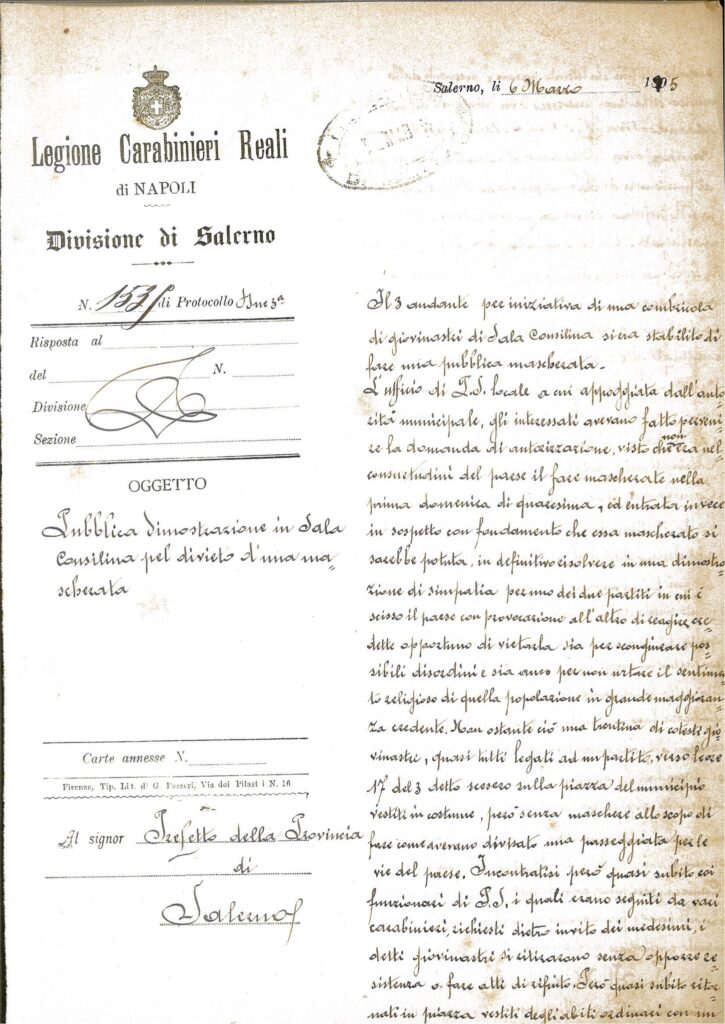 Salerno, li 6 Marzo 1905
Legione Carabinieri Reali
di NAPOLI
Divisione di Salerno
N. 1535 di Protocollo
Risposta al
del N.
Divisione
Sezione
OGGETTO
Pubblica dimostrazione in Sala
Consilina pel divieto d'una ma=
scherata
Carte annesse N.
Firenze, Tip. Lit. di G. Passeri, Via dei Pilastri N. 16
Al signor Prefetto della Provincia
di
Salerno
Il 3 andante per iniziativa di una combricola
di giovinastri di Sala Consilina si era stabilito di
fare una pubblica mascherata.
L'ufficio di P.S. locale a cui appoggiata dall'auto
rità municipale, gli interessati avevano fatto perveni
re la domanda di autorizzazione, visto che non era nel
consuetudini del paese il fare mascherate nella
prima domenica di quaresima, ed entrato invece
in sospetto con fondamento che essa mascherata si
sarebbe potuta, in definitivo risolvere in una dimostra
zione di simpatia per uno dei due partiti in cui è
scisso il paese con provocazione all'altro di reagire, cre=
dette opportuno di vietarla sia per scongiurare pos=
sibili disordini e sia anco per non urtare il sentimen
to religioso di quella popolazione in grande maggioran=
za credente. Non ostante ciò una trentina di cotesti gio=
vinastri, quasi tutti legati ad un partito, verso le ore
17 del 3 detto scesero sulla piazza del municipio
vestiti in costume, però senza maschere allo scopo di
fare come avevano divisato una passeggiata per le
vie del paese. Incontratisi però quasi subito coi
funzionari di P.S. i quali erano seguiti da vari
carabinieri, richiesti dietro invito dei medesimi, i
detti giovinastri si ritirarono senza opporre re=
sistenza o fare atti di rifiuto. Però quasi subito ritor
nati in piazza vestiti degli abiti ordinari con un